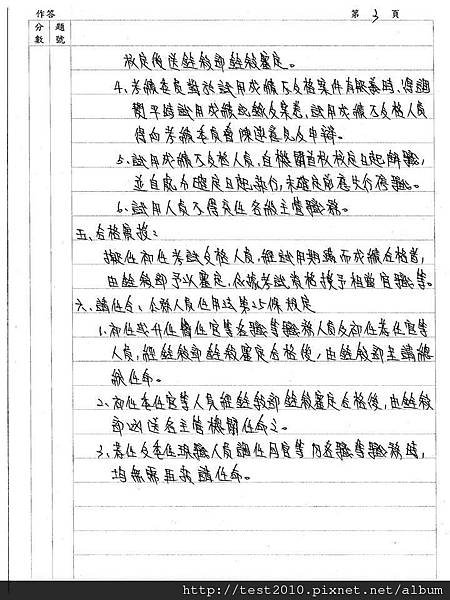 作答
第 3 頁
分數
題號
核定後送銓敘部銓敘審定。
4. 考績委員對於試用成績不及格案件有疑義時,得調
閱平時試用成績紀錄及案卷,試用成績不及格人員
得向考績委員會陳述意見及申辯。
5. 試用成績不及格人員,自機關首長核定日起解職,
並自處分確定日起執行,未確定前應先行停職。
6. 試用人員不得充任各級主管職務。
五、合格實授:
擬任初任考試及格人員,經試用期滿而成績合格者,
由銓敘部予以審定,依據考試資格授予相當官職等。
六、請任命:公務人員任用法第25條規定
1. 初任或升任簡任官等各職等職務人員及初任荐任官等
人員,經銓敘部銓敘審定合格後,由銓敘部呈請總
統任命。
2. 初任委任官等人員經銓敘部銓敘審定合格後,由銓敘
部函送各主管機關任命之。
3. 荐任及委任現職人員調任同官等內各職等職務時,
均無需再請任命。
http://test2010.pixnet.net/album